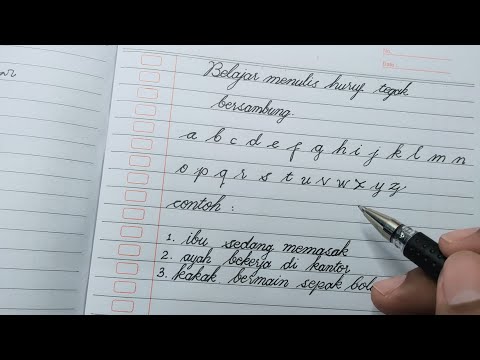 Belajar menulis huruf tegak
bersambung.
a b c d e f g h i j k l m n
o p q r s t u v w x y z
contoh :
1. ibu sedang memasak
2. ayah bekerja di kantor
3. kakak bermain sepak bola